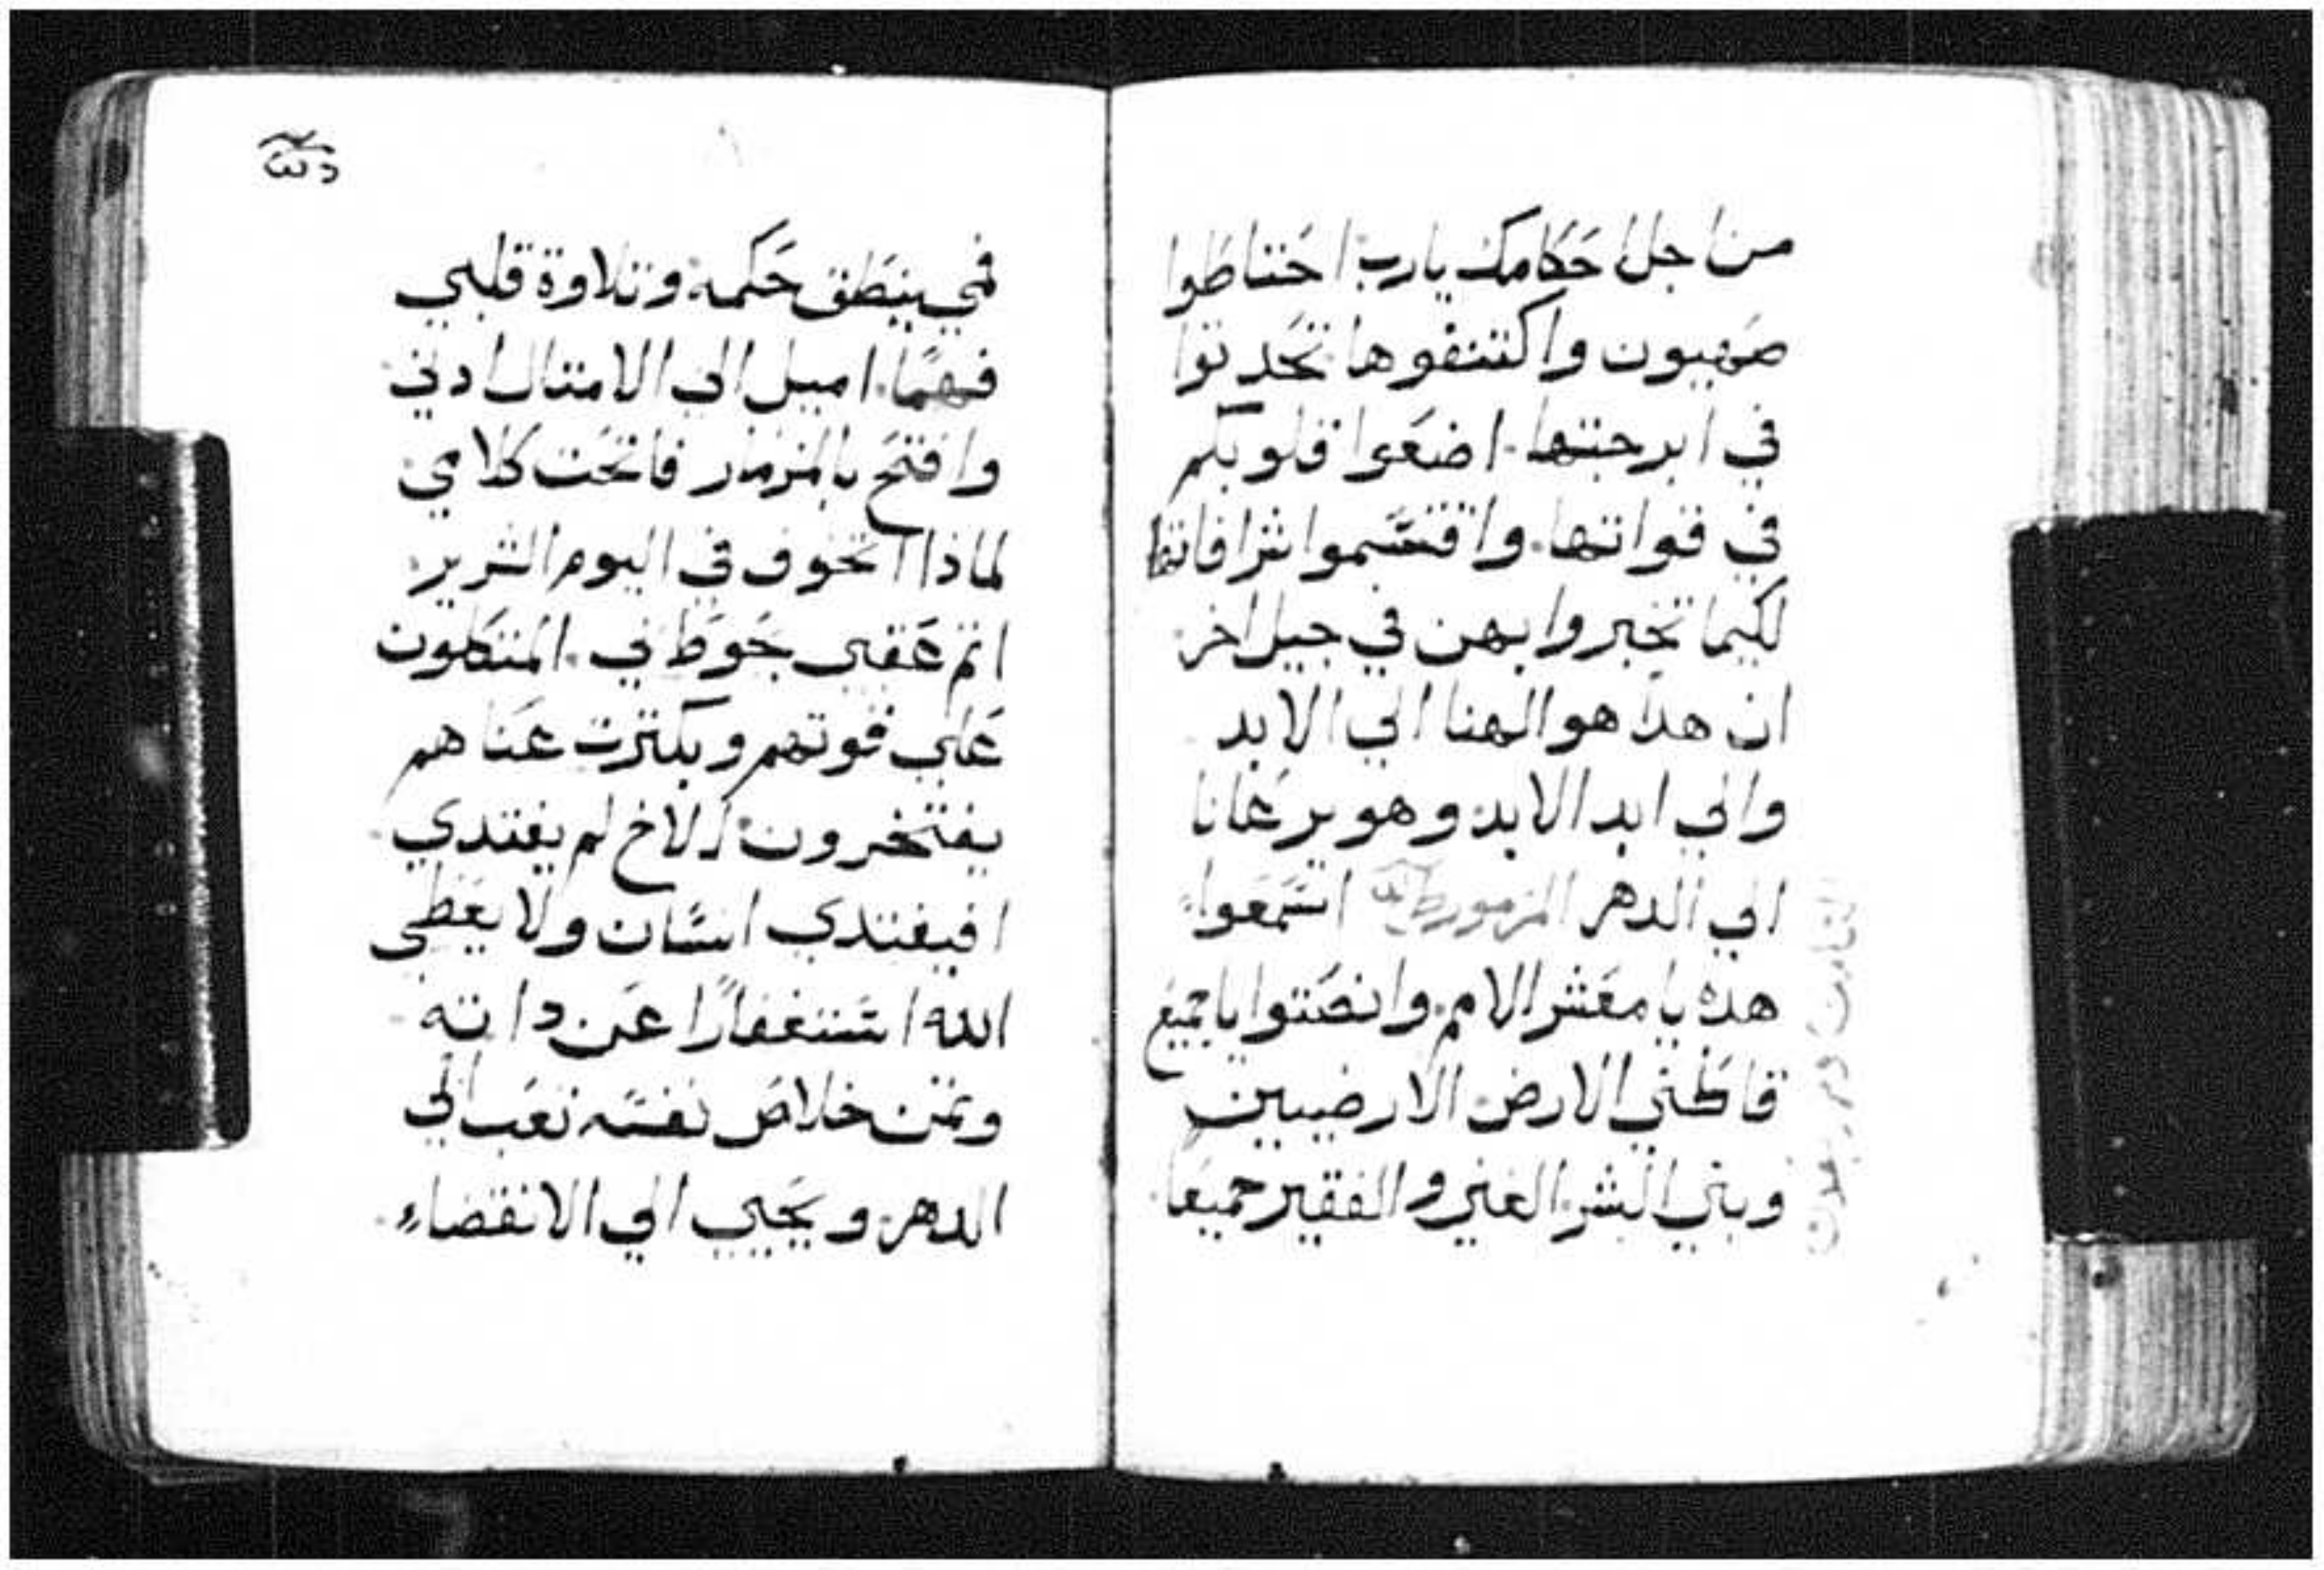 من اجل احكامك يارب احتاطوا
صهيون واكتنفوها تحدتوا
في ابرجتها. اضعوا قلوبكم
في قواتها. واقتسموا شرافاتها
لكيما تخبروا بهن في جيل اخر
ان هدا هو الهنا الي الابد
والي ابد الابد وهو يرعانا
الي الدهر المزمور استمعوا
هده يا معشر الامم. وانصتوا يا جميع
قاطني الارض الارضيين
وبني البشر الغني والفقير جميعا.
فمي ينطق حكمه وتلاوة قلبي
فهمًا. اميل الي الامتال ادني
وافتح بالمزمار فاتحت كلامي
لماذا اتخوف في اليوم الشرير
اتم عقبي يحوط ني. المتكلون
علي قوتهم وبكترت غناهم
يفتخرون. الاخ لم يفتدي
افيفتدي انسان ولا يعطى
الله استغفارًا عن داته
وتمن خلاص نفسه تعب الي
الدهر. ويحيي الي الانقضاء.